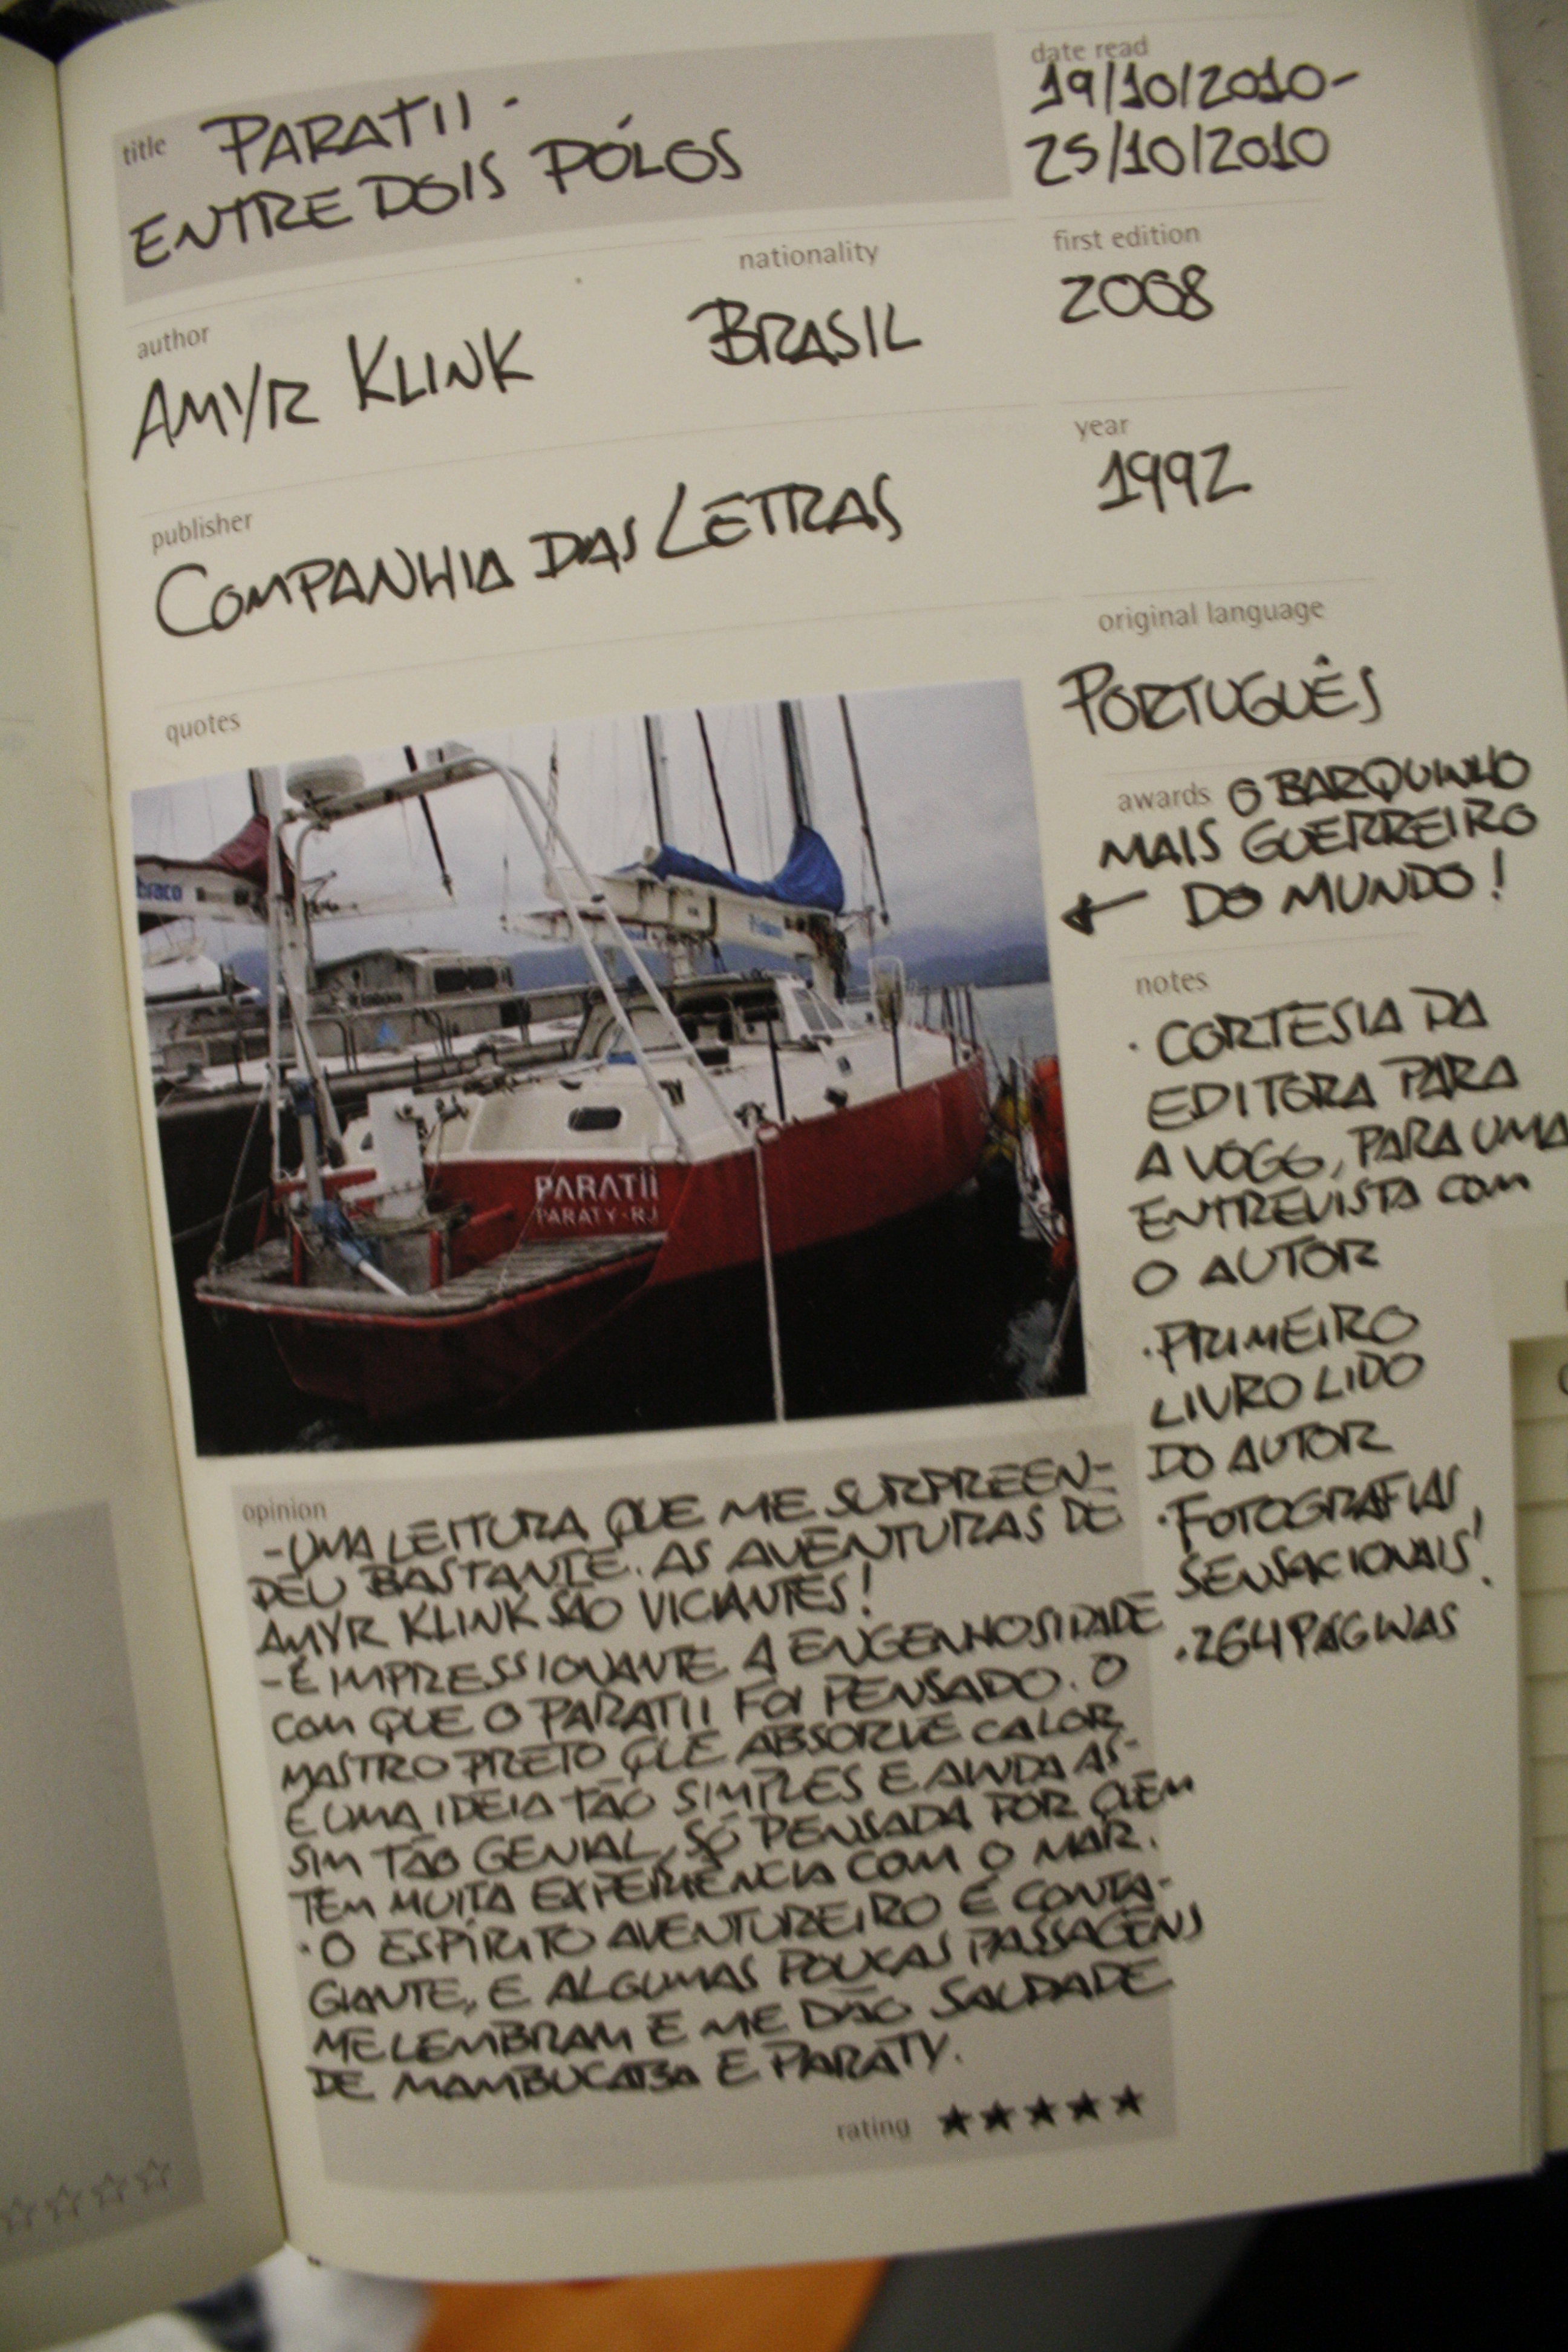 title PARATII -
ENTRE DOIS PÓLOS
date read
19/10/2010-
25/10/2010
author
AMYR KLINK
nationality
BRASIL
first edition
2008
publisher
COMPANHIA DAS LETRAS
year
1992
original language
PORTUGUÊS
quotes
PARATII
PARATY-RJ
awards O BARQUINHO
MAIS GUERREIRO
DO MUNDO!
notes
· CORTESIA DA
EDITORA PARA
A VOGG, PARA UMA
ENTREVISTA COM
O AUTOR
· PRIMEIRO
LIVRO LIDO
DO AUTOR
· FOTOGRAFIAS
SENSACIONAIS!
· 264 PÁGINAS
opinion
- UMA LEITURA QUE ME SURPREEN-
DEU BASTANTE. AS AVENTURAS DE
AMYR KLINK SÃO VICIANTES!
- É IMPRESSIONANTE A ENGENHOSIDADE
COM QUE O PARATII FOI PENSADO. O
MASTRO PRETO QUE ABSORVE CALOR
É UMA IDEIA TÃO SIMPLES E AINDA AS-
SIM TÃO GENIAL, SÓ PENSADA POR QUEM
TEM MUITA EXPERIÊNCIA COM O MAR.
· O ESPÍRITO AVENTUREIRO É CONTA-
GIANTE, E ALGUMAS POUCAS PASSAGENS
ME LEMBRAM E ME DÃO SAUDADE
DE MAMBUCABA E PARATY.
rating ★★★★★